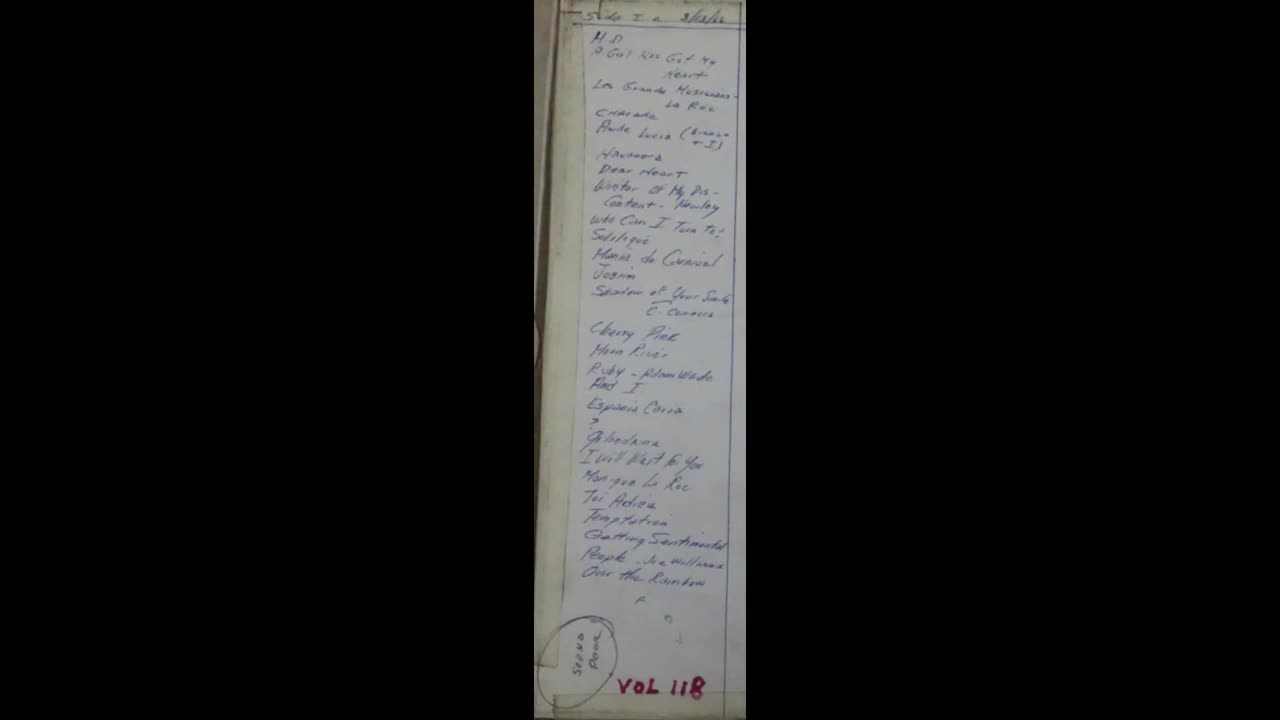 Side I
A Gal Has Got My
Heart
Los Grande Musicians -
La Roc
Charade
Ande Lucia (
+ I)
Havanera
Dear Heart
Winter of My Dis-
Content - Newley
Who Can I Turn To?
Soliliquo
Manha de Carnival
Jobim
Shadow of Your Smile
C. Connors
Cherry Pink
Moon River
Ruby - Adam Wade
And I
Espania Caria
?
Golondrina
I Will Wait For You
Monique La Roc
Toi Adieu
Temptation
Getting Sentimental
People - Joe Williams
Over the Rainbow
SOUND
POOR
VOL 118